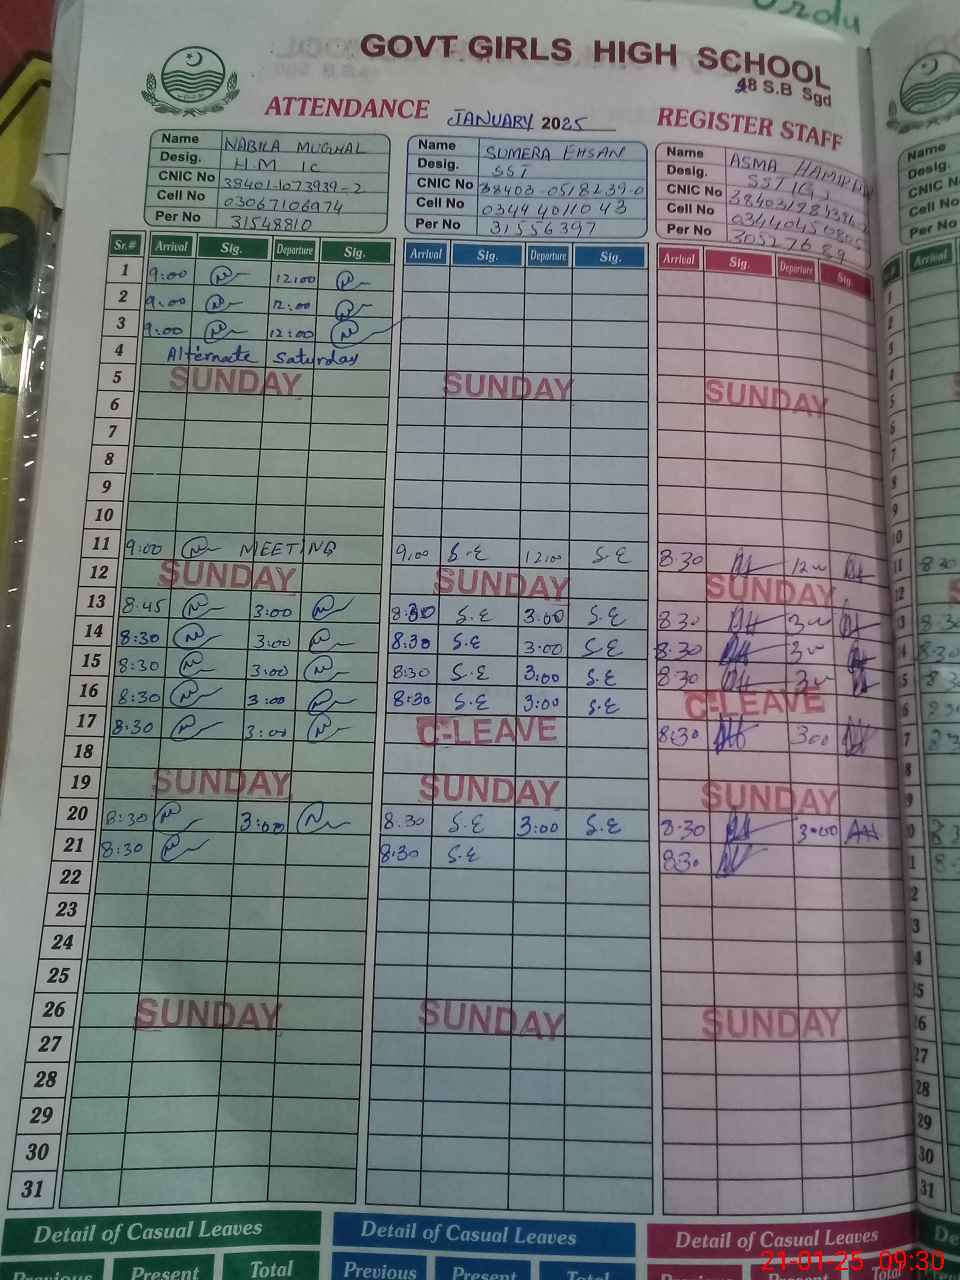 Urdu
GOVT GIRLS HIGH SCHOOL
48 S.B Sgd
ATTENDANCE JANUARY 2025 REGISTER STAFF
Name NABILA MUGHAL Name SUMERA EHSAN Name ASMA
Desig. H.M IC Desig. SST Desig.
CNIC No 38401-1073939-2 CNIC No 38403-0518239-0 CNIC No
Cell No 03067106974 Cell No 03444011043 Cell No
Per No 31548810 Per No 31556397 Per No
Name
Desig.
CNIC N
Cell No
Per No
Sr.# Arrival Sig. Departure Sig. Arrival Sig. Departure Sig. Arrival Sig. Departure Sig. Arrival
1 9:00 12:00
2 9:00 12:00
3 9:00 12:00
4 Alternate Saturday
5 SUNDAY SUNDAY SUNDAY
6
7
8
9
10
11 9:00 MEETING 9,00 S.E 12,00 S.E 8.30 12 8.30
12 SUNDAY SUNDAY SUNDAY
13 8.45 3:00 8:30 S.E 3.00 S.E 8.30 3 8.30
14 8:30 3:00 8:30 S.E 3:00 S.E 8.30 3 8.30
15 8:30 3:00 8:30 S.E 3:00 S.E 8.30 3
16 8:30 3:00 8:30 S.E 3:00 S.E C-LEAVE
17 8:30 3:00 C-LEAVE 8:30 300
18
19 SUNDAY SUNDAY SUNDAY
20 8:30 3:00 8.30 S.E 3:00 S.E 8.30 3:00
21 8:30 8:30 S.E 8.30
22
23
24
25
26 SUNDAY SUNDAY SUNDAY
27
28
29
30
31
Detail of Casual Leaves Detail of Casual Leaves Detail of Casual Leaves De
Previous Present Total Previous Present Total Previous Present Total
21-01-25 09:30